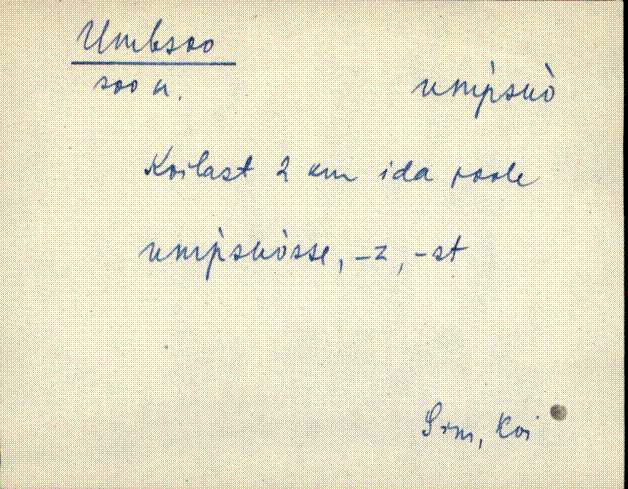 Umbsoo
soo n. ump̀suò
Koilast 2 km ida poole
ump̀suòsse, -z, -st
Srm, Koi